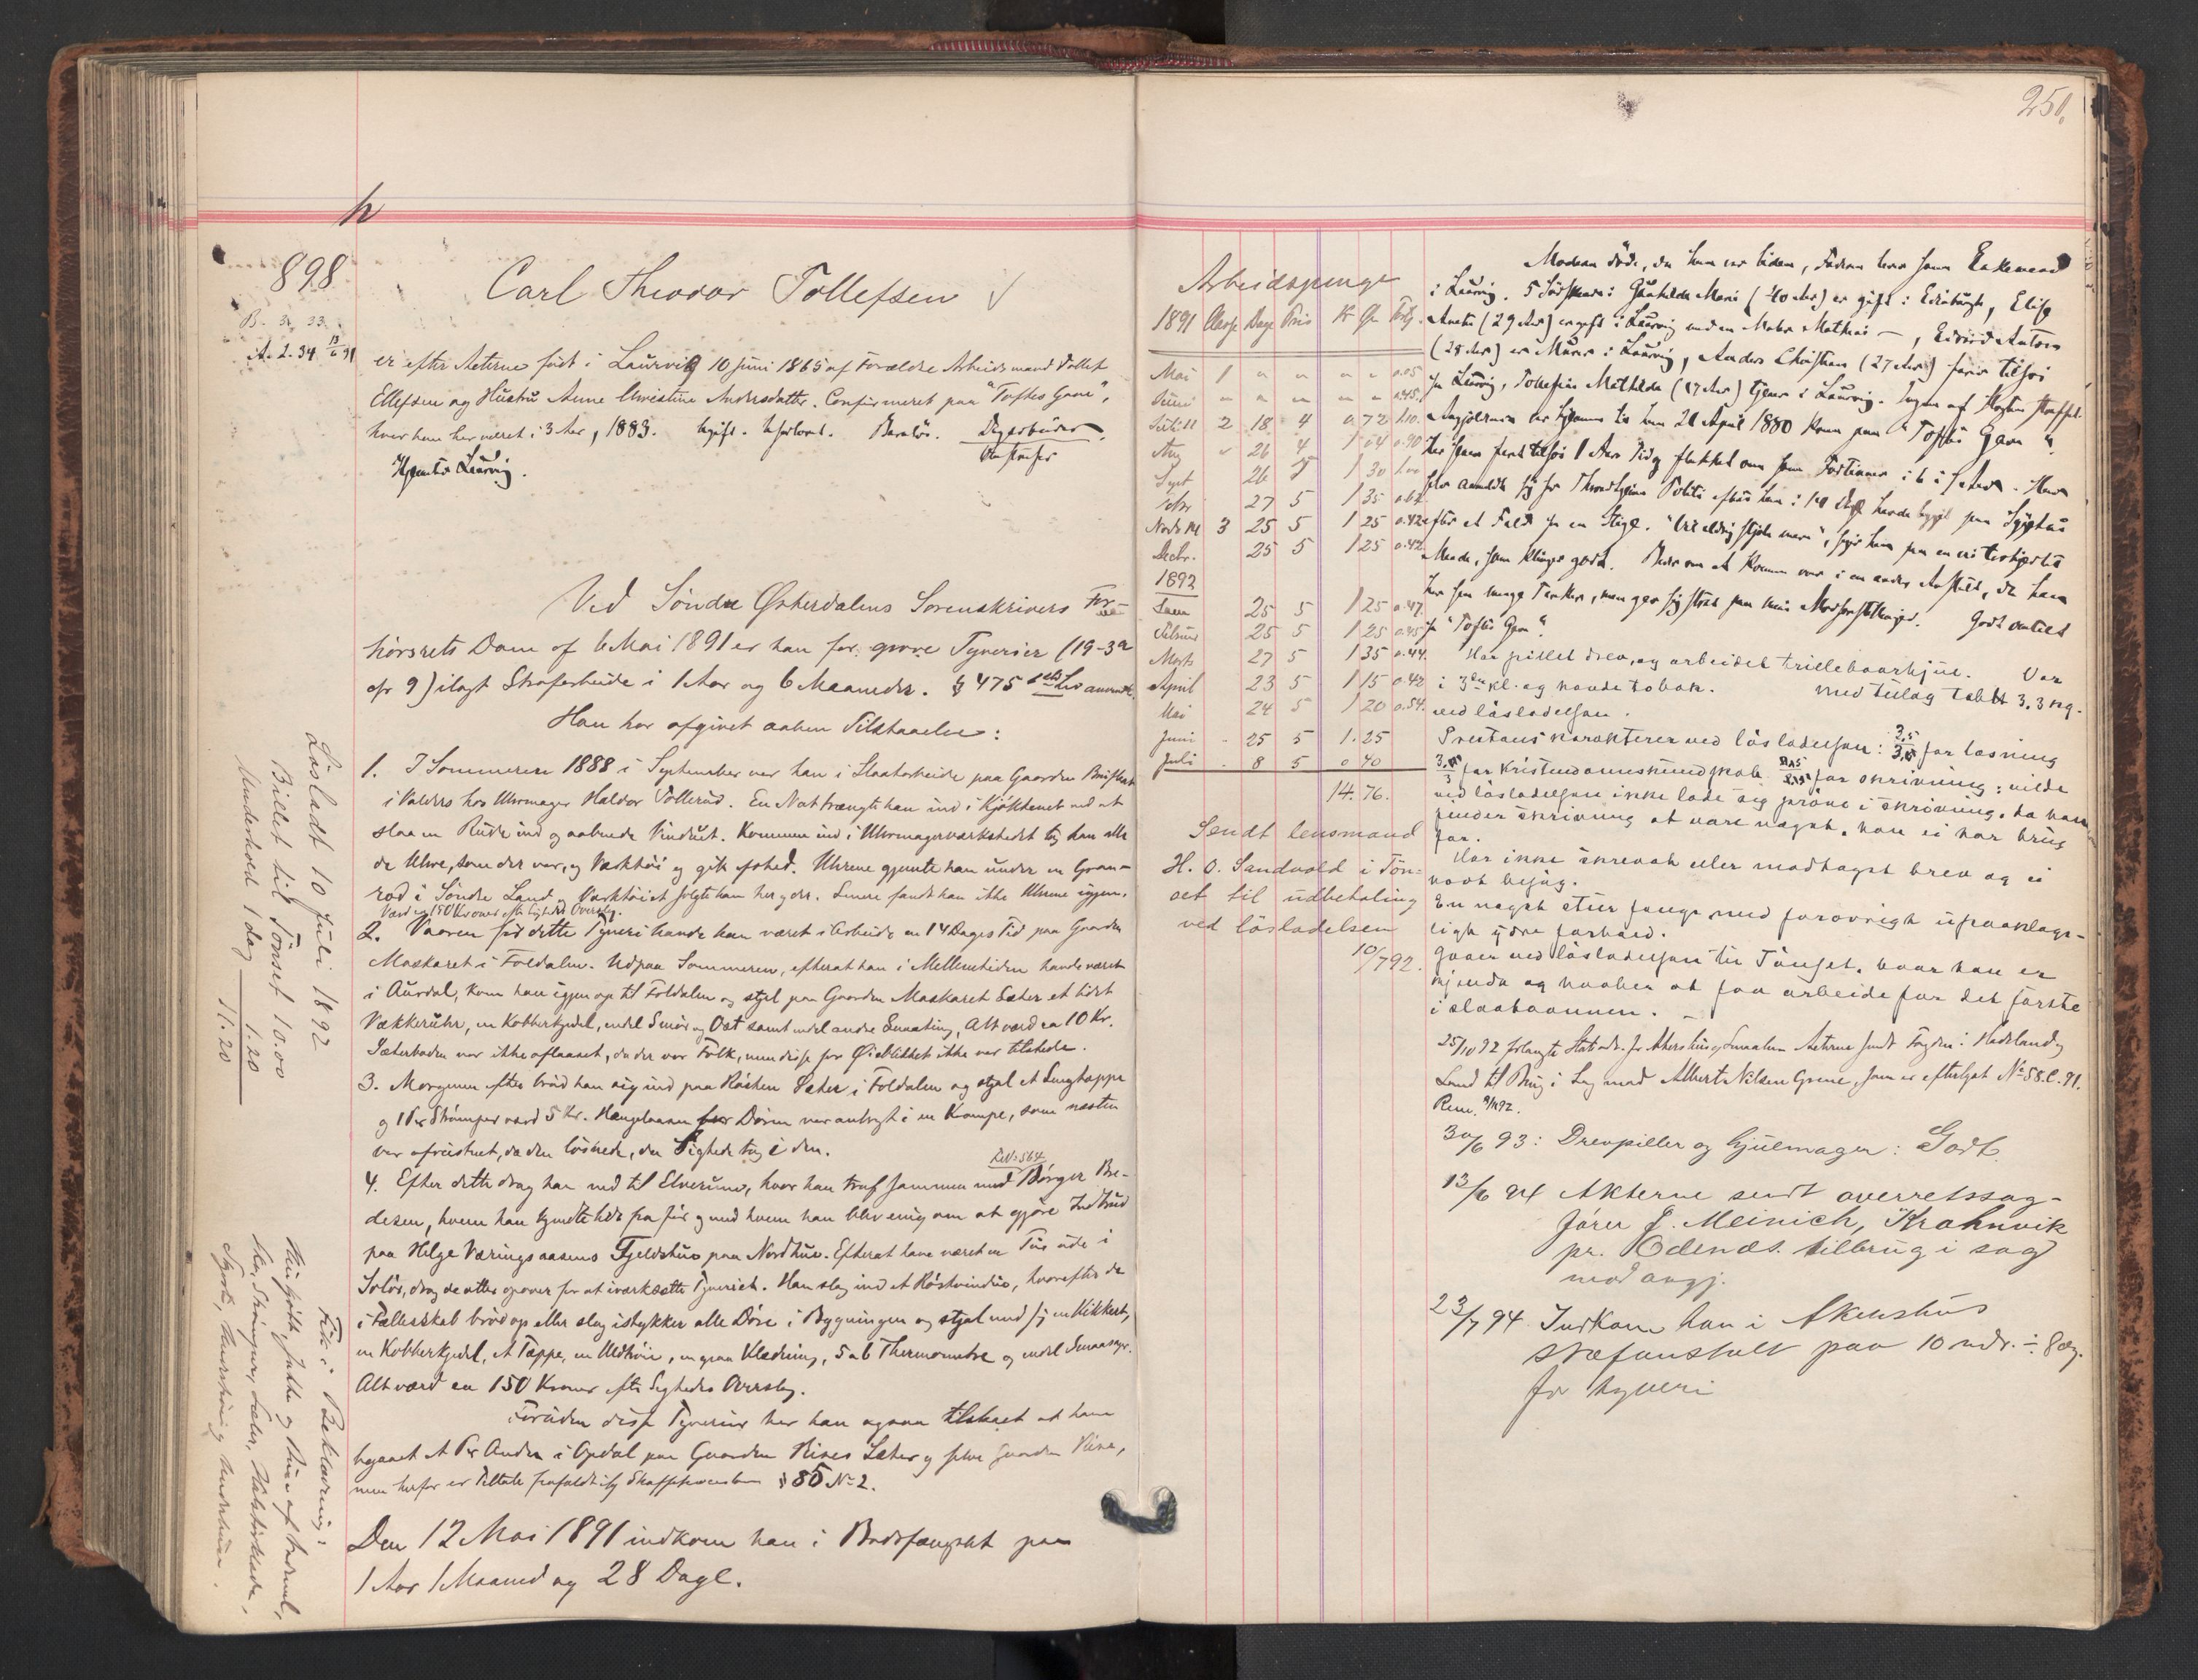 h
898
B. 3. 33.
A. 2. 34 13/6 91
Carl Theodor Tollefsen
er efter Akterne født i Laurvig 10 Juni 1865 af Forældre Arbeidsmand Tollef
Ellefsen og Hustru Anne Christine Andersdatter. Confirmeret paa "Toftes Gave",
hvor han har været i 3 Aar, 1883. Ugift. Uforlovet. Barnløs. Dagarbeider.
Hjemsted Laurvig.
Ved Søndre Østerdalens Sorenskrivers For-
hørsrets Dom af 6 Mai 1891 er han for grove Tyverier (19-3a
cfr 9) ilagt Strafarbeide i 1 Aar og 6 Maaneder. § 475
Han har afgivet aaben Tilstaaelse:
1. I Sommeren 1888 i September var han i Slaatarbeide paa Gaarden
i Valders hos Uhrmager Haldor Tollerud. En Nat trængte han ind i Kjøkkenet ved at
slaa en Rude ind og aabnede Vinduet. Kommen ind i Uhrmagerværkstedet tog han alle
de Uhre, som der var, og Værktøi og gik afsted. Uhrene gjemte han under en Gran-
rod i Søndre Land. Værktøiet solgte han her og der. Senere fandt han ikke Uhrene igjen.
Værd ca 150 Kroner efter Sigtedes Overslag.
2. Vaaren før dette Tyveri havde han været i Arbeide en 14 Dages Tid paa Gaarden
Maskaret i Foldalen. Udpaa Sommeren, efterat han i Mellemtiden havde været
i Aurdal, kom han igjen op til Foldalen og stjal paa Gaarden Maskaret Sæter et lidet
Vækkeruhr, en Kobberkjedel, endel Smør og Ost samt endel andre Smaating, Alt værd ca 10 Kr.
Sæterboden var ikke aflaaset, da der var Folk, men disse for Øieblikket ikke var tilstede.
3. Morgenen efter brød han sig ind paa Råsten Sæter i Foldalen og stjal et Sengtæppe
og 1 Par Strømper værd 5 Kr. Hængelaasen for Døren var anbragt i en Krampe, som næsten
var afrustnet, da den løsnede, da Sigtede tog i den.
Litr. 564
4. Efter dette drog han ned til Elverum, hvor han traf sammen med Børger Bre-
desen, hvem han kjendte lidt fra før og med hvem han blev enig om at gjøre Indbrud
paa Helge Væringsaasens Fjeldstue paa Nordhue. Efterat have været en Tur ude i
Solør, drog de atter opover for at iværksætte Tyveriet. Han slog ind et Røstvindue, hvorefter de
i Fællesskab brød op eller slog istykker alle Døre i Bygningen og stjal med sig en Kikkert,
en Kobberkjedel, et Tæppe, en Uldtrøie, en graa Klædning, 5 a 6 Thermometre og endel Smaasager.
Alt værd ca 150 Kroner efter Sigtedes Overslag.
Foruden disse Tyverier har han ogsaa tilstaaet at have
begaaet et Par Andre i Opdal paa Gaarden Rises Sæter og selve Gaarden Rise,
men herfor er Tiltale frafaldt ifg Straffeprocesloven § 85 No 2.
Den 12 Mai 1891 indkom han i Bodsfængslet paa
1 Aar 1 Maaned og 28 Dage.
Løsladt 10 Juli 1892
Billet til Tönset 10.00
Underhold 1 dag 1.20
11.20
Fik i Beklædning:
250.
Arbeidspenge
1891 Classe Dage Pris Kr Øre
Mai 1 " " " " 0.05
Juni " " " " " 0.45
Juli 11 2 18 4 0 72 1.10.
Aug " 26 4 1 04 0.90
Sept 26 5 1 30
Octbr 27 5 1 35 0.62
Novb 3 25 5 1 25 0.42
Decbr. 25 5 1 25 0.42
1892
Janu 25 5 1 25 0.47
Februar 25 5 1 25 0.45
Marts 27 5 1 35 0.44
April 23 5 1 15 0.42
Mai 24 5 1 20 0.54
Juni 25 5 1.25
Juli 8 5 0 40
14.76.
Sendt lensmand
H. O. Sandvold i Tön-
set til udbetaling
ved lösladelsen
10/7 92.
Moderen døde, da han var liden, Faderen lever som Enkemand
i Laurvig. 5 Sødskende: Gunhilde Marie (40 Aar) er gift i Edinburgh, Elise
Anette (29 Aar) er gift i Laurvig med en Maler Mathias —, Edvard Anton
(28 Aar) er Murer i Laurvig, Anders Christian (27 Aar) farer tilsøs
fra Laurvig, Tollefine Mathilde (17 Aar) tjener i Laurvig. Ingen af Slægten straffet.
Angjældende var hjemme til han 21 April 1880 kom paa "Toftes Gave".
Har faret tilsøs 1 Aars Tid og flakket om som Fødtianer i 6 i 7 Aar. Har
selv anmeldt sig for Throndhjems Politi efterat han i 14 Dage havde ligget paa Sygehus
efter et Fald fra en Stige. "Vil aldrig stjæle mere", siger han paa en
Maade, som klinger godt. Beder om at komme over i en anden Anstalt, da han
har saa mange Tanker, men gav sig strax paa mine Modforestillinger. Godt omtalt
fra "Toftes Gave".
Har pillet drev, og arbeidet trillebaarhjul. Var
i 3die kl. og havde tobak. Med tillæg tabt 3.3 kg.
ved lösladelsen.
Prestens karakterer ved lösladelsen: 3,5 for læsning
for kristendomskundskab for skrivning; vilde
ved lösladelsen ikke lade sig pröve i skrivning, da han
finder skrivning at være noget, han ei har brug
for.
Har ikke skrevet eller modtaget brev og ei
havt besög.
En noget stur fange med forövrigt upaaklage-
ligt ydre forhold.
Gaar ved lösladelsen til Tönset, hvor han er
kjendt og haaber at faa arbeide for det förste
i slaataannen. —
25/10 92 forlangte Statadv. for Akershus og Smaalen Akterne sendt Fogden i Hadeland og
Land til Brug i Sag mod Albert Nilsen Grene, som er efterlyst No 58. C. 91.
Rem. 9/11 92.
30/6 93: Drevpiller og Hjulmager: Godt.
13/6 94 Akterne sendt overretssag-
fører J. Meinich, Krohnvik
pr. Odenæs. tilbrug i sag
mod angj.
23/7 94 Indkom han i Akershus
strafanstalt paa 10 mdr. ÷ 8 dg.
for tyveri